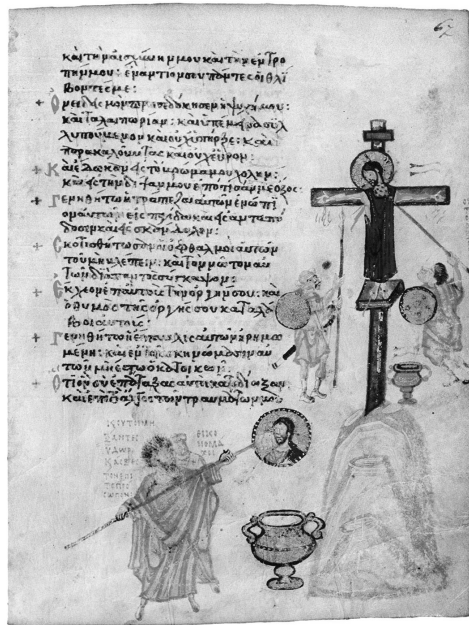 67
καὶ τὴν αἰσχύνην μου καὶ τὴν ἐντρο
πήν μου: ἐναντίον σου πάντες οἱ θλί
βοντές με:
+ Ονειδισμὸν προσεδόκησεν ἡ ψυχή μου:
καὶ ταλαιπωρίαν: καὶ ὑπέμεινα συλ
λυπούμενον καὶ οὐχ ὑπῆρξε: καὶ
παρακαλοῦντας καὶ οὐχ εὗρον:
+ Καὶ ἔδωκαν εἰς τὸ βρῶμά μου χολήν:
καὶ εἰς τὴν δίψαν μου ἐπότισάν με ὄξος:
+ Γενηθήτω ἡ τράπεζα αὐτῶν ἐνώπι
ον αὐτῶν εἰς παγίδα καὶ εἰς ἀνταπό
δοσιν καὶ εἰς σκάνδαλον:
+ Σκοτισθήτωσαν οἱ ὀφθαλμοὶ αὐτῶν
τοῦ μὴ βλέπειν: καὶ τὸν νῶτον αὐ
τῶν διὰ παντὸς σύγκαμψον:
+ Εκχεον ἐπ' αὐτοὺς τὴν ὀργήν σου: καὶ
ὁ θυμὸς τῆς ὀργῆς σου καταλά
βοι αὐτούς:
+ Γενηθήτω ἡ ἔπαυλις αὐτῶν ἠρημω
μένη: καὶ ἐν τοῖς σκηνώμασιν αὐ
τῶν μὴ ἔστω ὁ κατοικῶν:
+ Οτι ὃν σὺ ἐπάταξας αὐτοὶ κατεδίωξαν
καὶ ἐπὶ τὸ ἄλγος τῶν τραυμάτων μου
ΥΔΩΡ